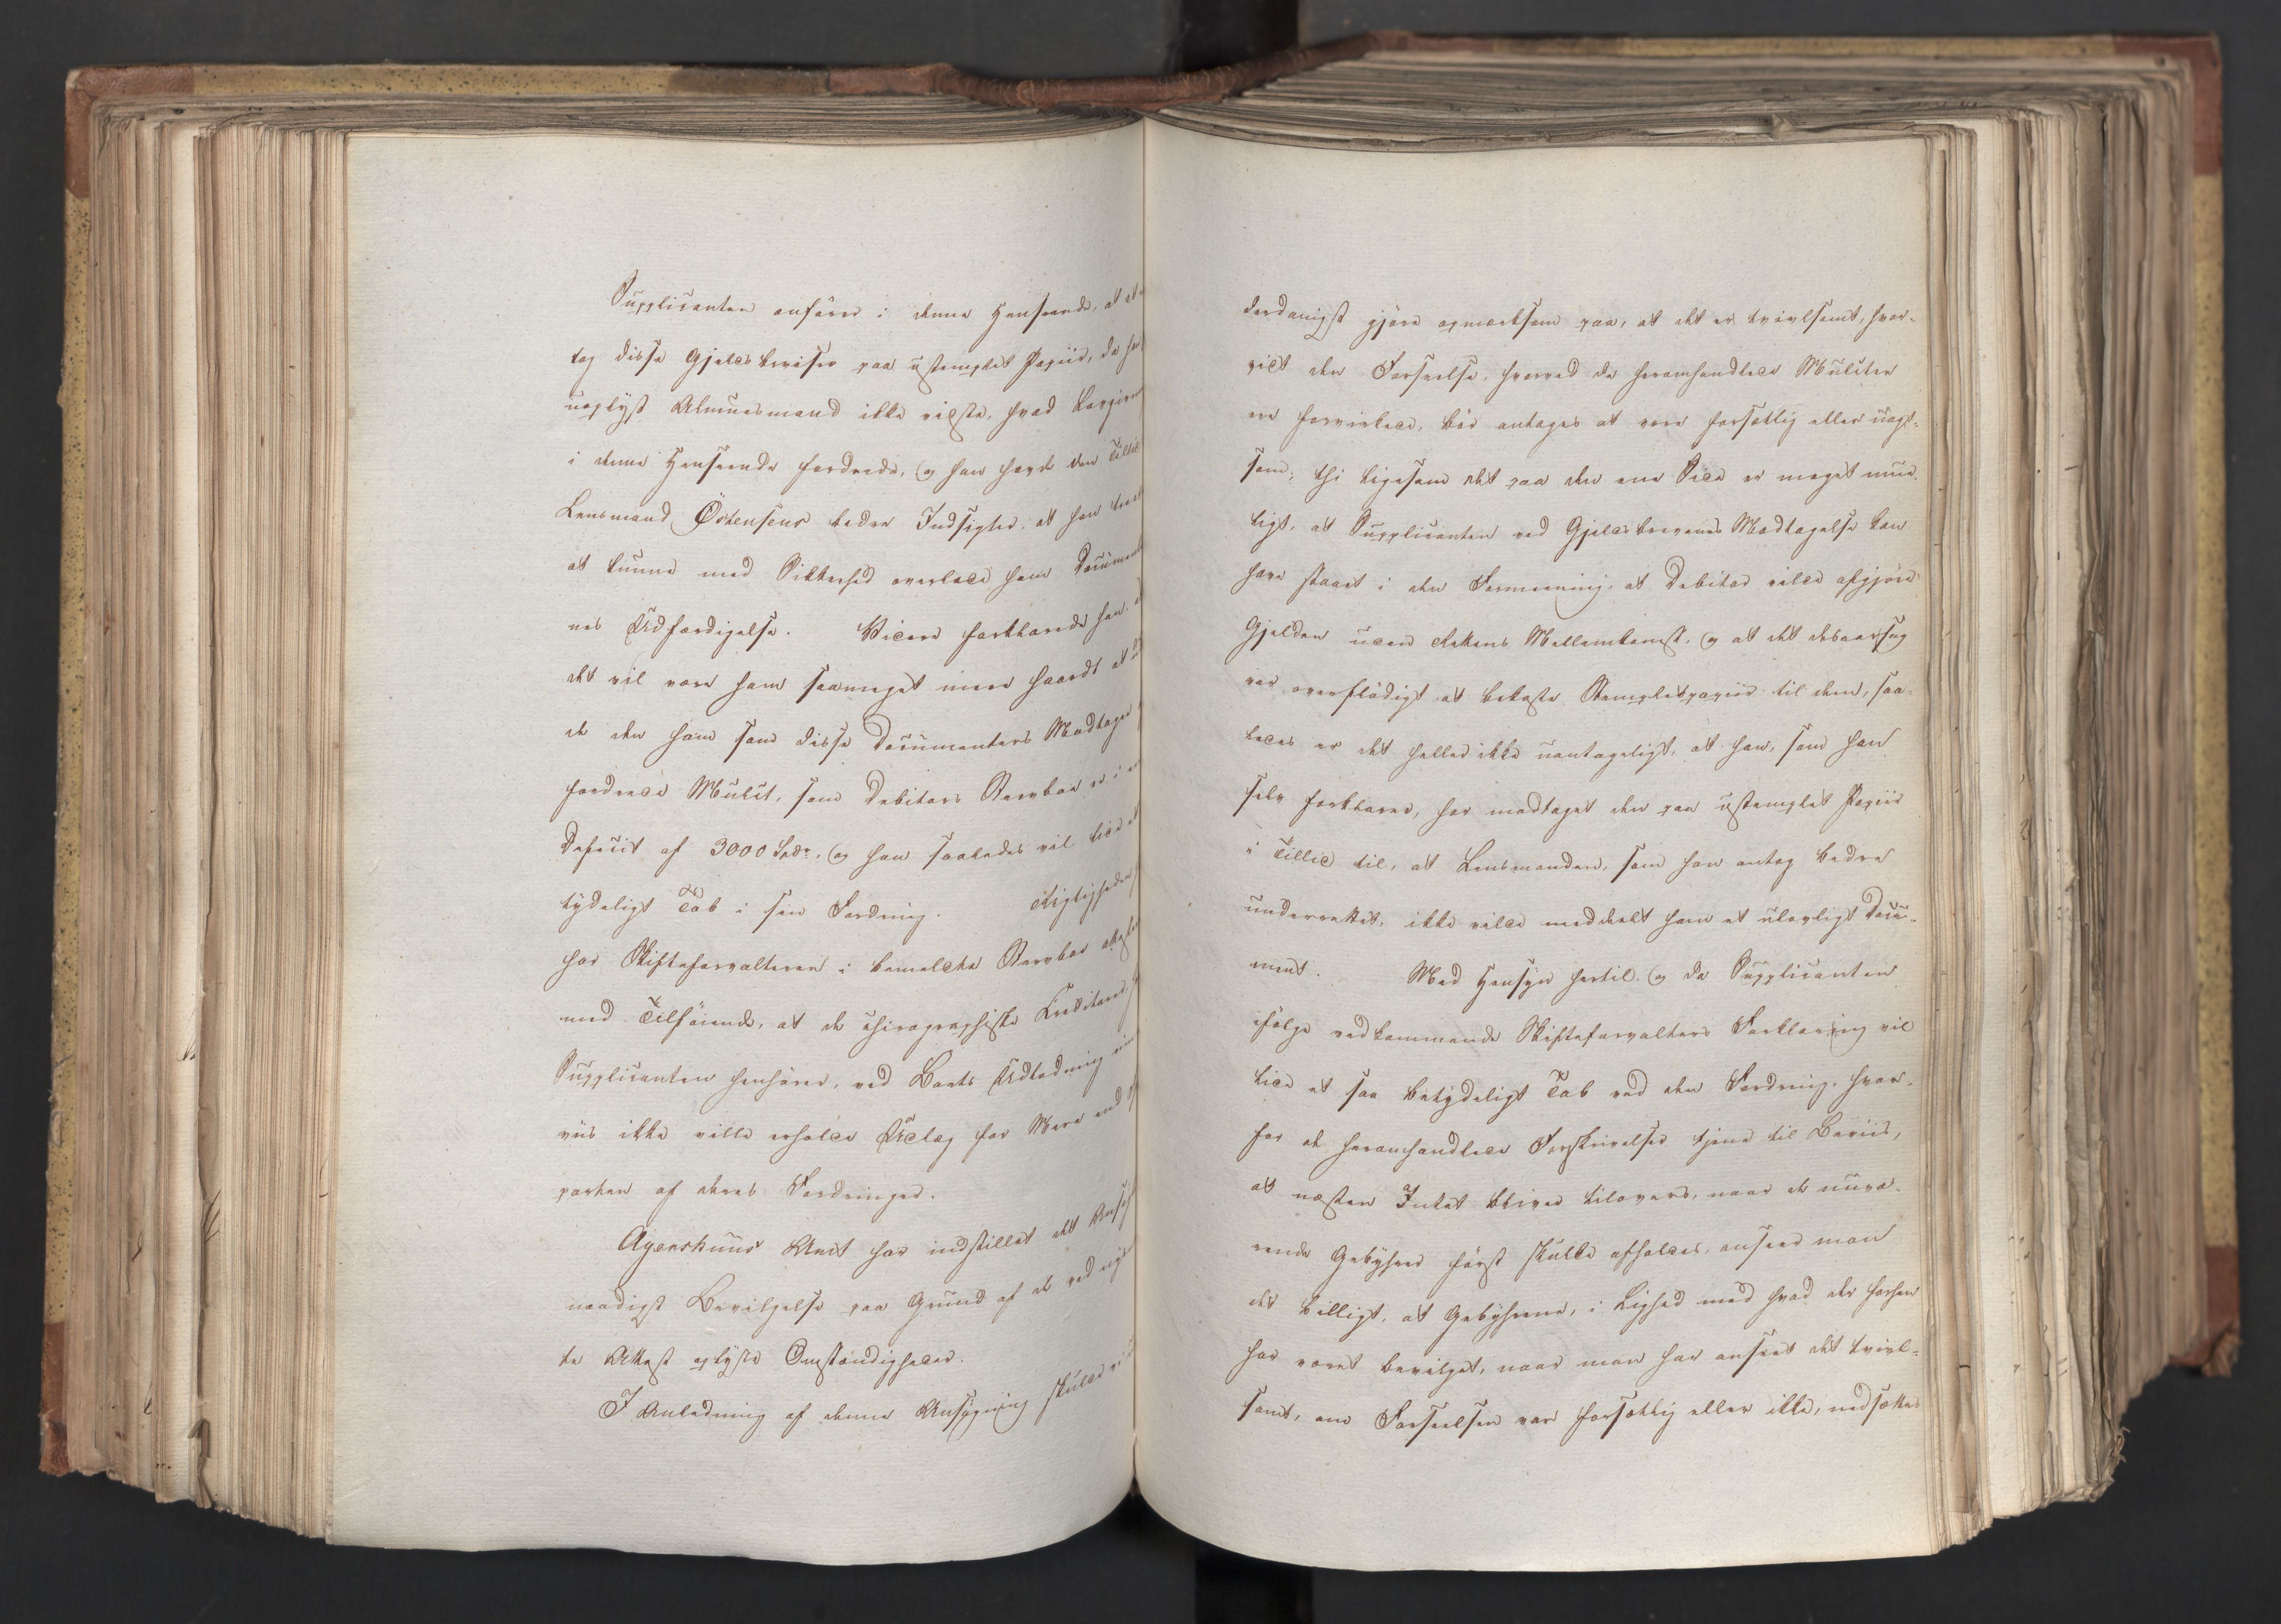 Supplicanten anfører i denne Henseende, at
tog disse Gjeldsbeviser paa ustemplet Papiir, da han
uoplyst Almuesmand ikke vidste, hvad Lovgivn
i denne Henseende fordrede, og han havde den Tillid
Lensmand Östensens bedre Indsigter, at han troede
at kunne med Sikkerhed overlade ham Documen
nes Udfærdigelse. Videre forklarede han, at
det vil være ham saameget mere haardt at
de den ham som disse Documenters Modtager
fordrede Mulct, som Debitors Stervboe er i en
Deficit af 3000 Spdr., og han saaledes vil lide et
tydeligt Tab i sin Fordring. Rigtigheden
har Skifteforvalteren i bemeldte Stervboe attesteret
med Tilføiende, at de chirographiske Creditorer
Supplicanten henhører, ved Boets Udlodning rim
viis ikke ville erholde Udlæg for Mere end
parten af deres Fordringer.
Agershuus Amt har indstillet det Ansøgte
naadigst Bevilgelse paa Grund af de ved
te Attest oplyste Omstændigheder.
I Anledning af denne Ansøgning skulde vi
derdanigst gjøre opmærksom paa, at det er tvivlsomt, hvor-
vidt den Forseelse, hvorved de heromhandlede Mulcter
ere forvirkede, bör antages at være forsætlig eller uagt-
som; thi ligesom det paa den ene Side er meget mue-
ligt, at Supplicanten ved Gjeldsbrevenes Modtagelse kan
have staaet i den Formeening, at Debitor vilde afgjøre
Gjelden uden Rettens Mellemkomst, og at det desaarsag
var overflødigt at bekoste Stempletpapiir til dem, saa-
ledes er det heller ikke uantageligt, at han, som han
selv forklarer, har modtaget den paa ustemplet Papiir
i Tillid til, at Lensmanden, som han antog bedre
underrettet, ikke vilde meddeelt ham et ulovligt Docu-
ment. Med Hensyn hertil og da Supplicanten
ifølge vedkommende Skifteforvalters Forklaring vil
lide et saa betydeligt Tab ved den Fordring, hvor-
for de heromhandlede Forskrivelser tjene til Beviis,
at næsten Intet bliver tilovers, naar de nuvæ-
rende Gebyhrer først skulle afholdes, anseer man
det billigt, at Gebyhrene, i Lighed med hvad der forhen
har været bevilget, naar man har anseet det tvivl-
somt, om Forseelsen var forsætlig eller ikke, nedsættes